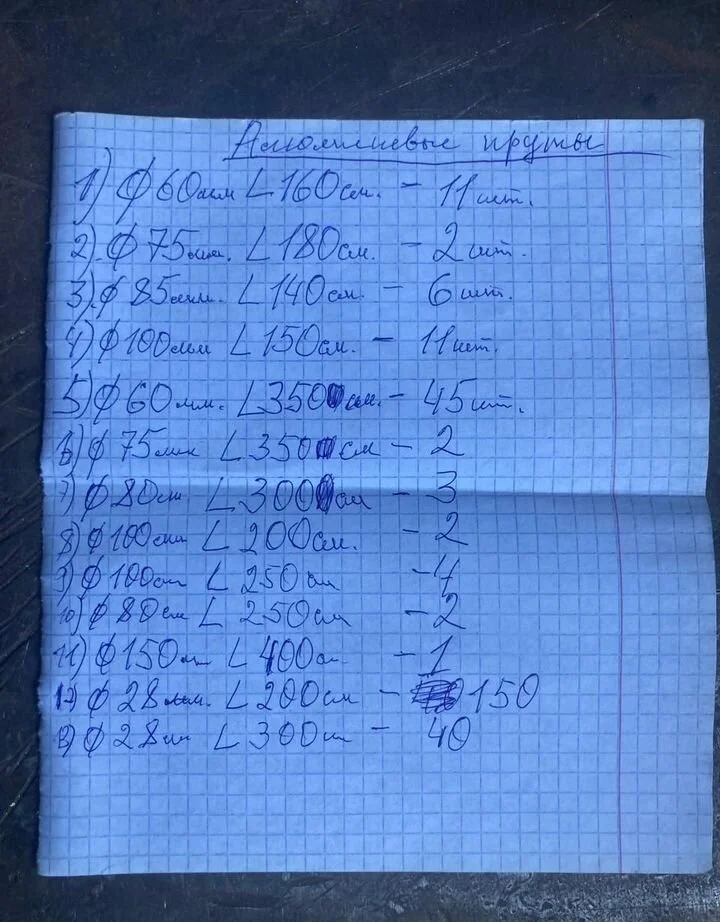 Алюминиевые пруты
1) ф 60мм L 160см. - 11 шт.
2) ф 75мм. L 180см. - 2 шт.
3) ф 85мм. L 140см. - 6 шт.
4) ф 100мм L 150см. - 11 шт.
5) ф 60мм. L 350см. - 45 шт.
6) ф 75мм L 350см - 2
7) ф 80мм L 300см - 3
8) ф 100мм L 200см. - 2
9) ф 100мм L 250см - 4
10) ф 80мм L 250см - 2
11) ф 150мм L 400см - 1
12) ф 28мм. L 200см - 150
13) ф 28мм L 300см - 40